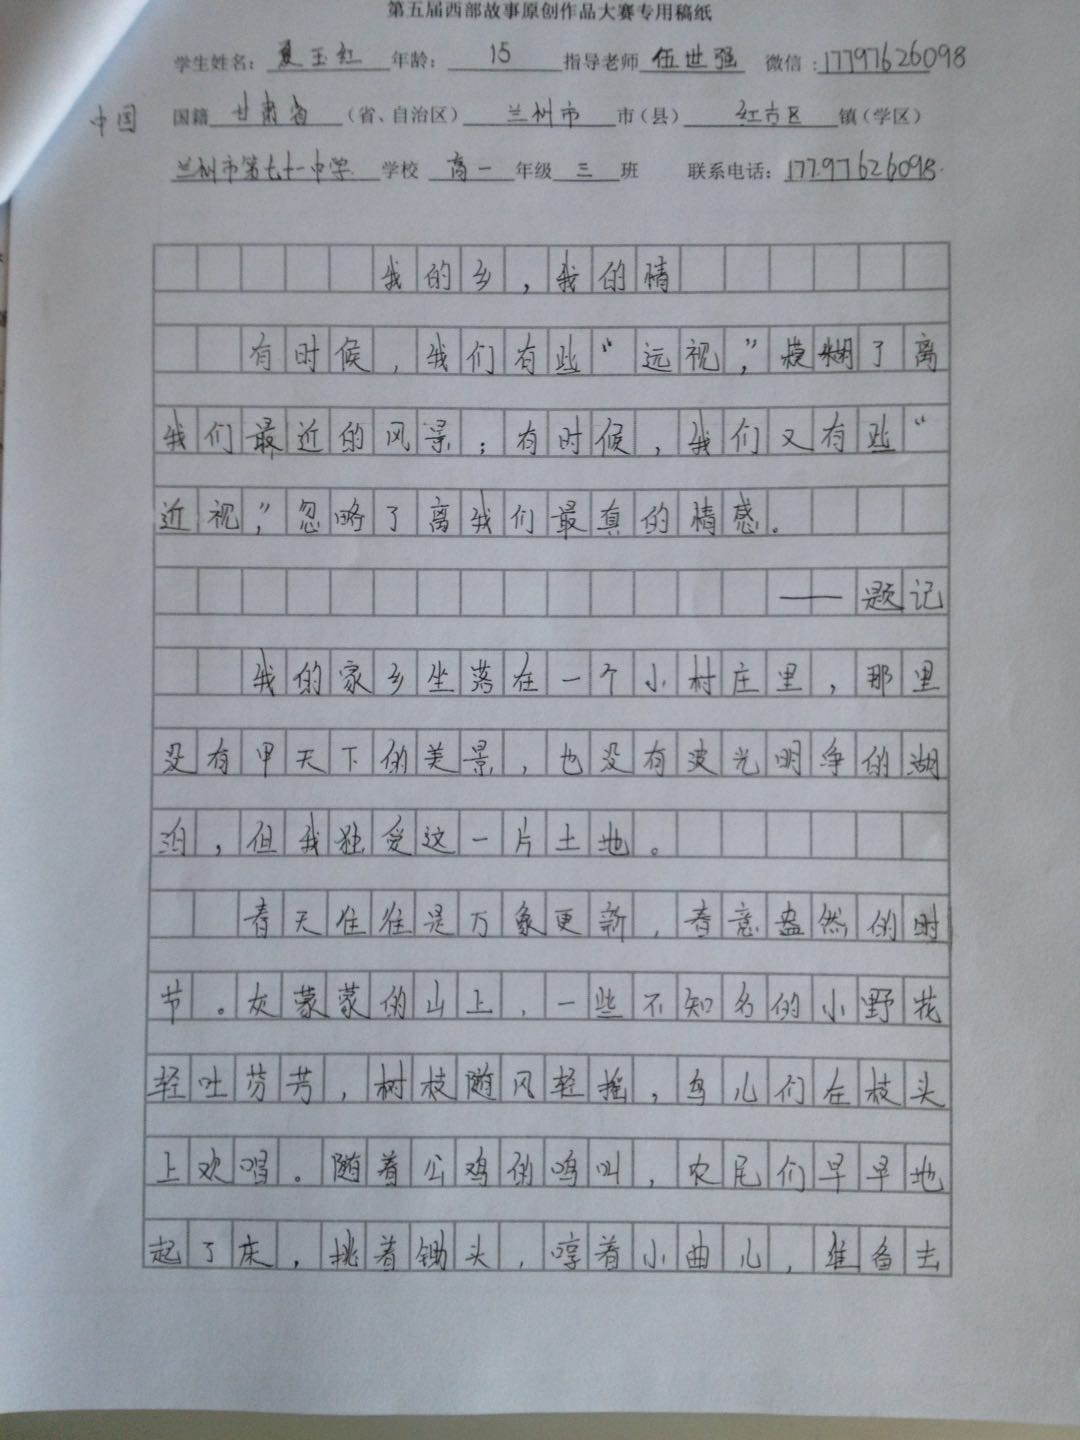 第五届西部故事原创作品大赛专用稿纸
学生姓名：夏玉红 年龄：15 指导老师 伍世强 微信：17797626098
中国 国籍 甘肃省（省、自治区）兰州市 市（县）红古区 镇（学区）
兰州市第七十一中学 学校 高一 年级 三 班 联系电话：17797626098.
我的乡，我的情
有时候，我们有些“远视”，模糊了离
我们最近的风景；有时候，我们又有些“
近视”，忽略了离我们最真的情感。
——题记
我的家乡坐落在一个小村庄里，那里
没有甲天下的美景，也没有波光明争的湖
泊，但我独爱这一片土地。
春天往往是万象更新，春意盎然的时
节。灰蒙蒙的山上，一些不知名的小野花
轻吐芬芳，树枝随风轻摇，鸟儿们在枝头
上欢唱。随着公鸡的鸣叫，农民们早早地
起了床，挑着锄头，哼着小曲儿，准备去